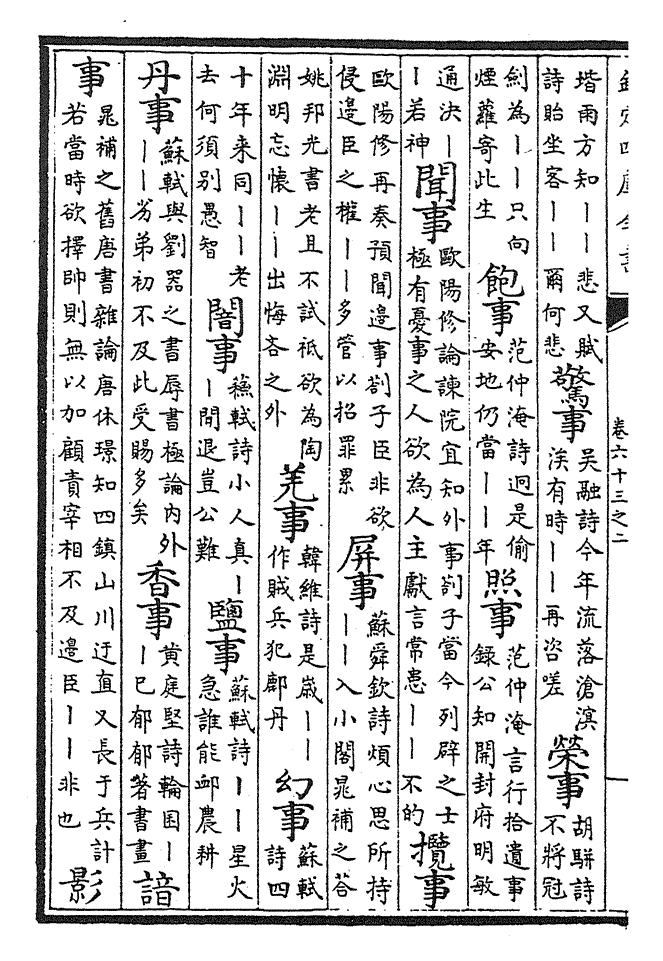 欽定四庫全書
卷六十三之二
堦雨方知丨丨悲又賦詩貽坐客丨丨爾何悲 驚事 吳融詩今年流落滄溟涘有時丨丨再咨嗟 榮事 胡駢詩不將冠
劍為丨丨只向煙蘿寄此生 飽事 范仲淹詩迥是偷安地仍當丨丨年 照事 范仲淹言行拾遺事録公知開封府明敏
通决丨丨若神 聞事 歐陽修論諫院宜知外事劄子當今列辟之士極有憂事之人欲為人主獻言常患丨丨不的 攬事
歐陽修再奏預聞邊事劄子臣非欲侵邉臣之權丨丨多管以招罪累 屏事 蘇舜欽詩煩心思所持丨丨入小閣晁補之荅
姚邦光書老且不試祗欲為陶淵明忘懷丨丨出悔吝之外 羌事 韓維詩是嵗丨丨作賊兵犯鄜丹 幻事 蘇軾詩四
十年来同丨丨老去何須别愚智 闇事 蘓軾詩小人真丨丨閒退豈公難 鹽事 蘇軾詩丨丨星火急誰能䘏農耕
丹事 蘇軾與劉器之書辱書極論内外丨丨劣弟初不及此受賜多矣 香事 黄庭堅詩輪囷丨丨已郁郁著書畫 諳
事 晁補之舊唐書雜論唐休璟知四鎮山川迂直又長于兵計若當時欲擇帥則無以加顧責宰相不及邊臣丨丨非也 影